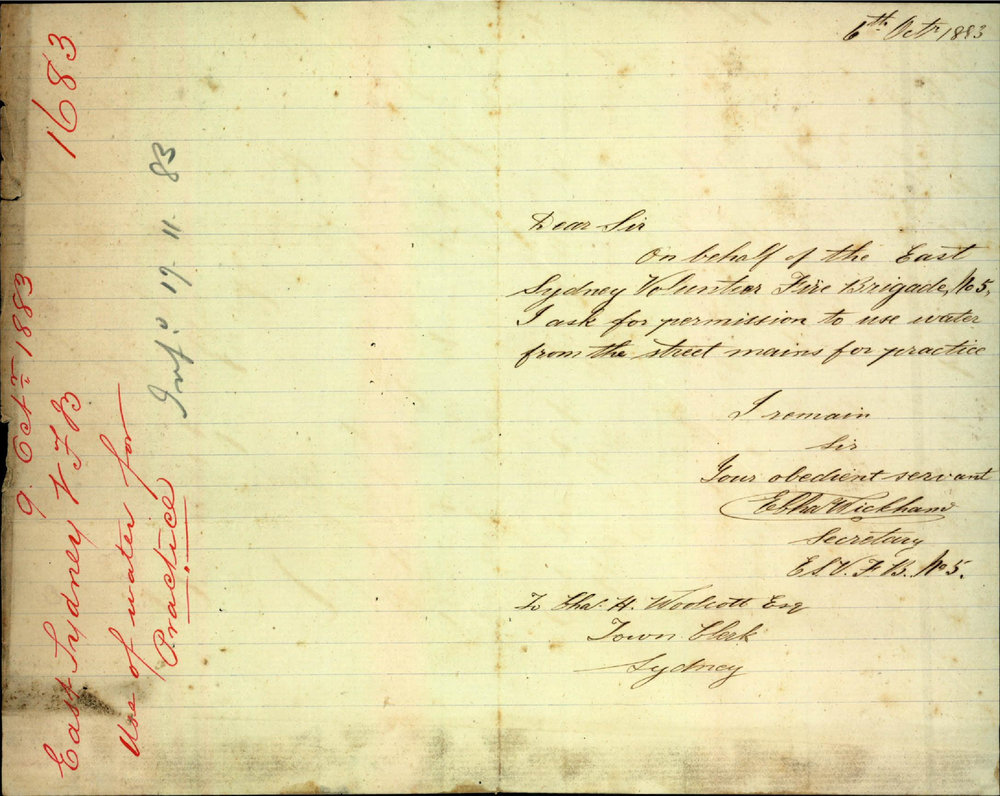 1683
9 Octr 1883
East Sydney V F B
Use of water for
Practice
19 11 83
6th Octr 1883
Dear Sir
On behalf of the East
Sydney Volunteer Fire Brigade, No 5,
I ask for permission to use water
from the street mains for practice
I remain
Sir
Your obedient servant
Wickham
Secretary
E.S.V.F.B. No 5.
To Chas. H. Woolcott Esq
Town Clerk
Sydney